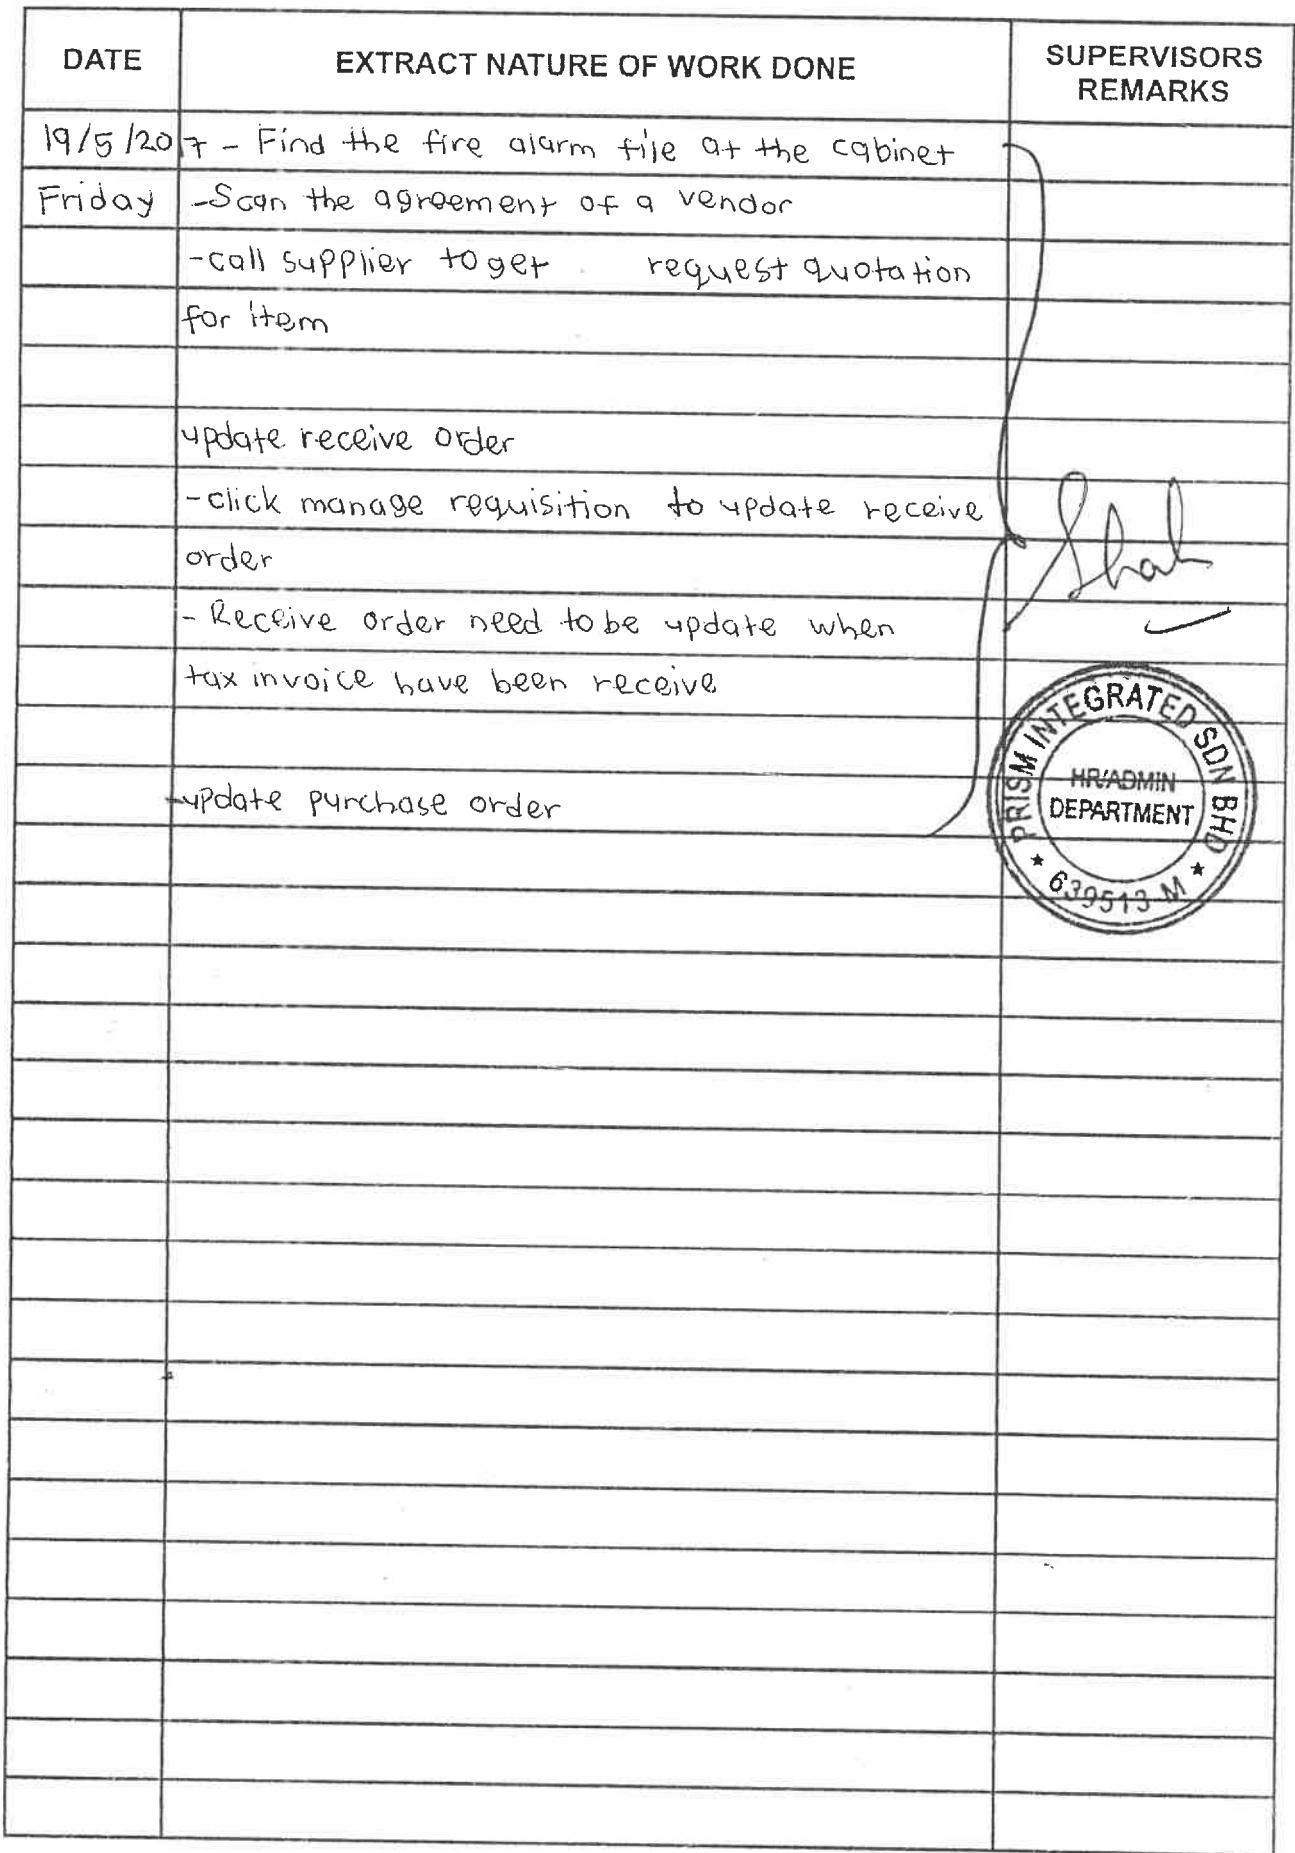 DATE EXTRACT NATURE OF WORK DONE SUPERVISORS REMARKS
19/5/2017 - Find the fire alarm file at the cabinet
Friday -Scan the agreement of a vendor
-call supplier to get request quotation
for item
update receive order
-click manage requisition to update receive
order
- Receive order need to be update when
tax invoice have been receive
-update purchase order
Shah
PRISM INTEGRATED SDN BHD
HR/ADMIN
DEPARTMENT
★ 639513-M ★